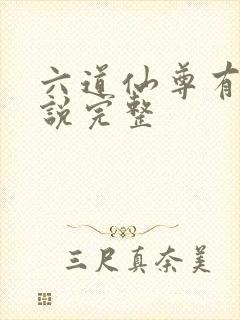 六道仙尊有
說完整
三尺真奈美